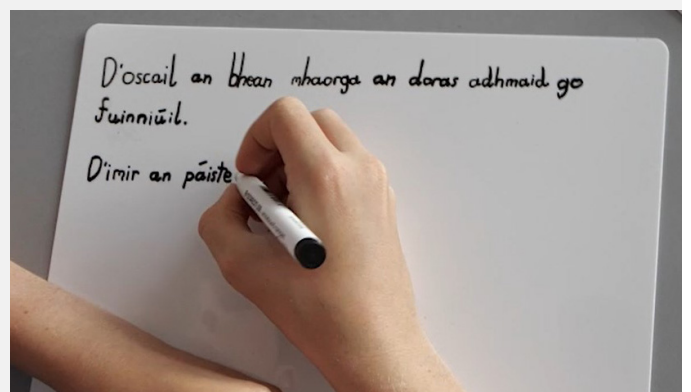 D'oscail an bhean mhaorga an doras adhmaid go
fuinniúil.
D'imir an páiste